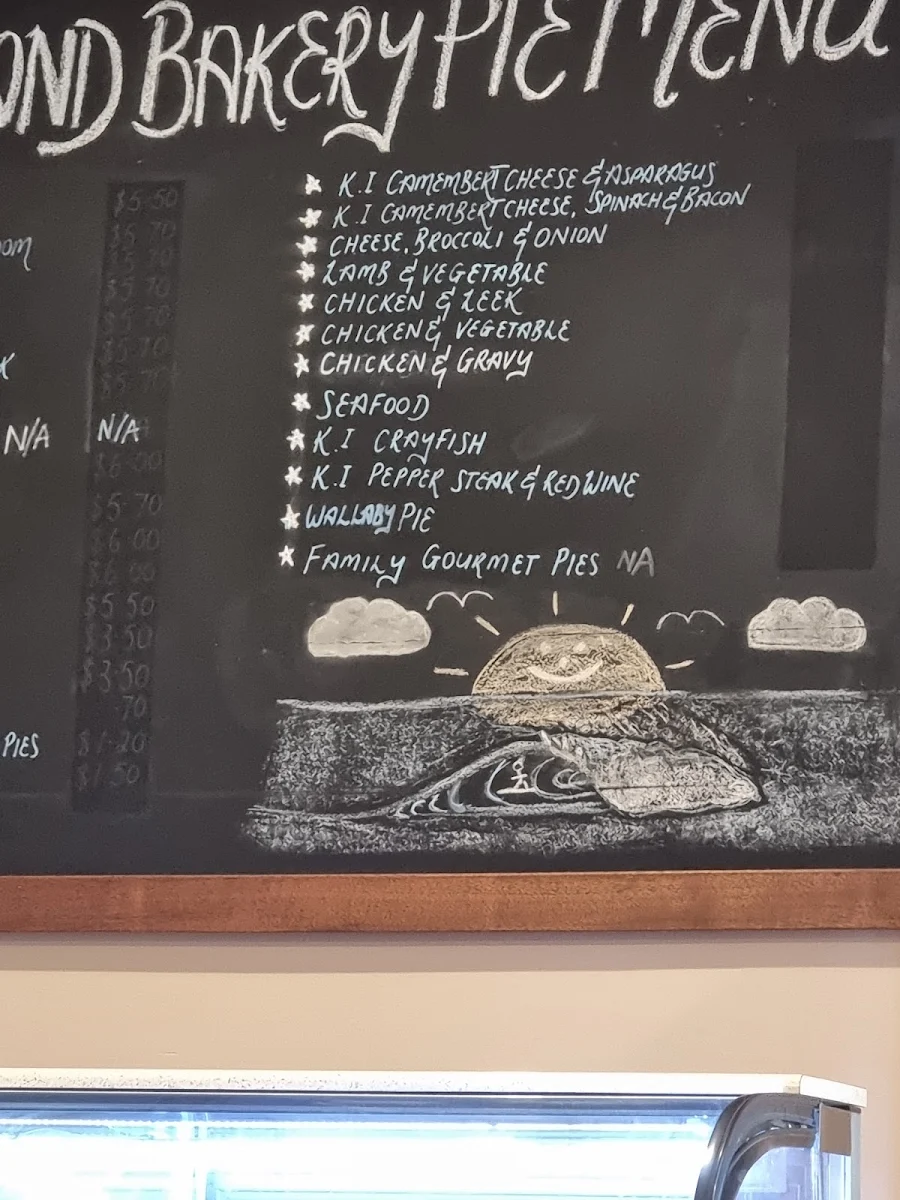 OND BAKERY PIE MENU
$5.50
$5.70
$5.70
$5.70
$5.70
N/A N/A
$6.00
$5.70
$6.00
$6.00
$5.50
$3.50
$3.50
.70
PIES $1.20
$1.50
★ K.I CAMEMBERT CHEESE & ASPARAGUS
★ K.I CAMEMBERT CHEESE, SPINACH & BACON
★ CHEESE, BROCCOLI & ONION
★ LAMB & VEGETABLE
★ CHICKEN & LEEK
★ CHICKEN & VEGETABLE
★ CHICKEN & GRAVY
★ SEAFOOD
★ K.I CRAYFISH
★ K.I PEPPER STEAK & RED WINE
★ WALLABY PIE
★ FAMILY GOURMET PIES NA